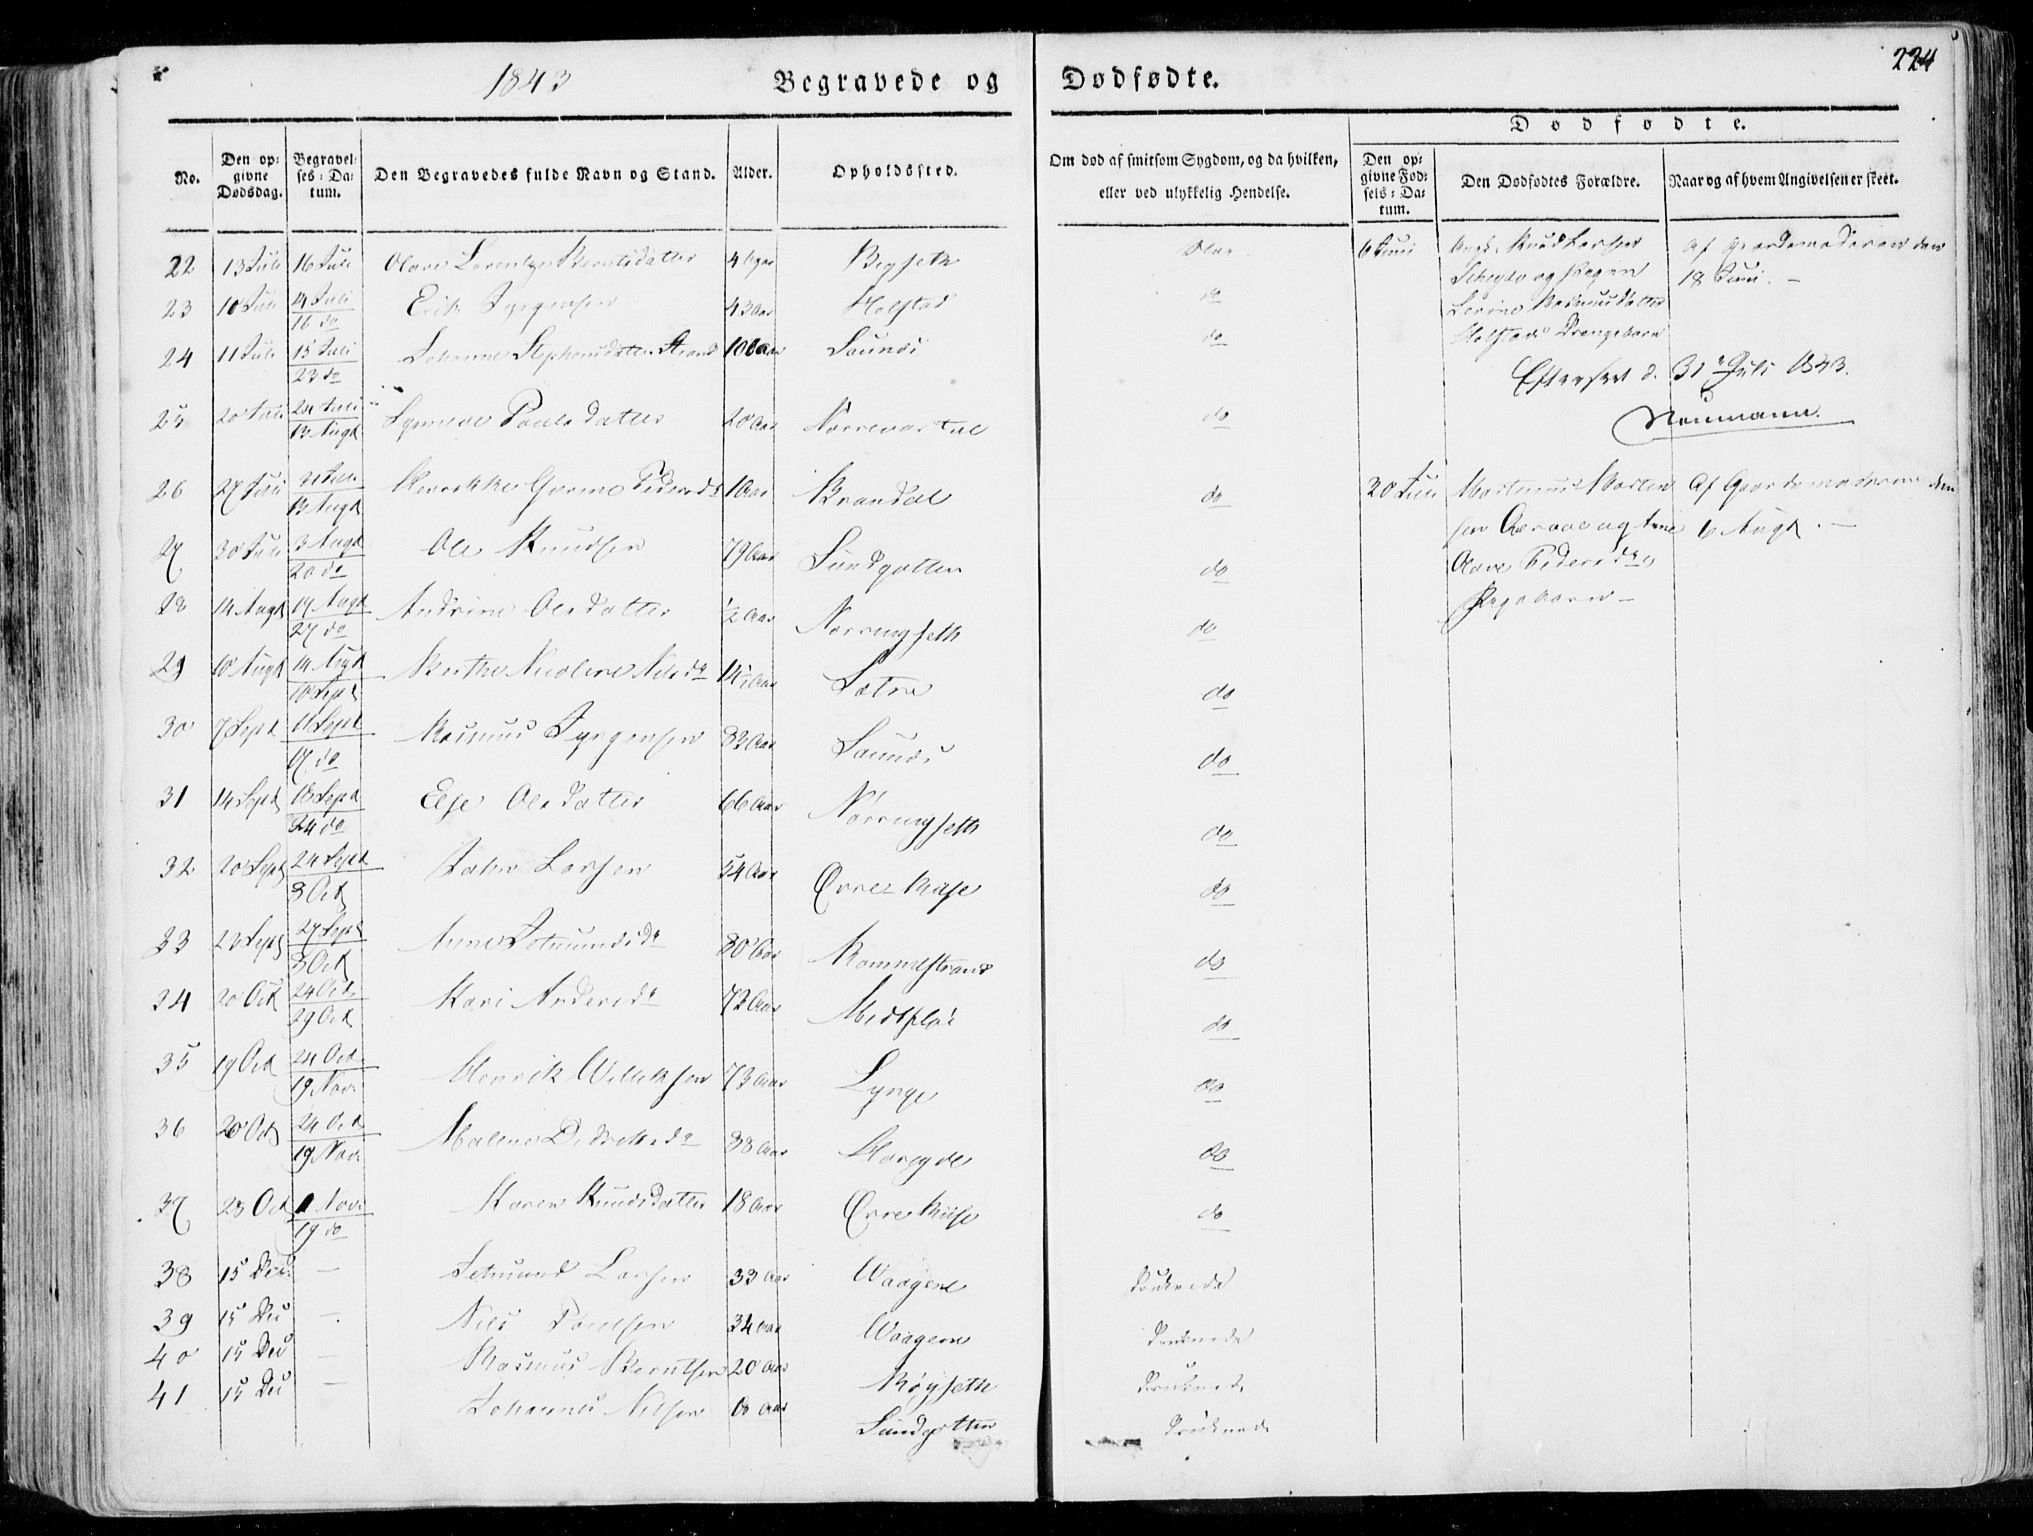 224
1843 Begravede og Dødfødte.
Dødfødte.
No. Den opgivne Dødsdag. Begravelses-Datum. Den Begravedes fulde Navn og Stand. Alder. Opholdssted. Om død af smitsom Sygdom, og da hvilken, eller ved ulykkelig Hendelse. Den opgivne Fødsels-Datum. Den Dødfødtes Forældre. Naar og af hvem Angivelsen er skeet.
22 13 Juli 16 Juli Berntsdatter 4 6 Juni Af Gaardemoderen den
18 Juni. –
23 10 Juli 14 Juli / 16 do Erik Jørgensen 43 Aar Holstad do
Rasmusdatter
Holstad Drengebarn
24 11 Juli 15 Juli / 23 do Johanne Stephensdatter Strand Saunes do
Efterseet d. 31 Juli 1843.
Neumann.
25 20 Juli 24 Juli / 13 Augt Synneve Poulsdatter 20 Aar do
26 27 Juli 31 Juli / 13 Augt Pedersdr 1 Aar Brandal do 20 Juli Martinus Marten Af Gaardemoderen den
sen Aarvae og Ane 6 Augt. –
27 30 Juli 3 Augt / 20 do Ole Knudsen 79 Aar Sundgotten do
Olave Pedersdr
Pigebarn –
28 14 Augt 19 Augt / 27 do Andrine Olsdatter ½ Aar Nørringseth do
29 10 Augt 14 Augt / 10 Sept Berthe Nicoline Nilsdr 14½ Aar Sætre do
30 7 Sept 11 Sept / 17 do Rasmus Jørgensen 83 Aar Saunes do
31 14 Sept 18 Sept / 24 do Else Olsdatter 66 Aar Nørringseth do
32 20 Sept 24 Sept / 8 Oct John Larsen 54 Aar Øvre Riise do
33 23 Sept 27 Sept / 8 Oct Anne Jetmundsdr 80 Aar Rammestrand do
34 20 Oct 24 Oct / 29 Oct Kari Andersdr 72 Aar Midtfløi do
35 19 Oct 24 Oct / 19 Nov. Henrik Willeksen 73 Aar Lynge do
36 20 Oct 24 Oct / 19 Nov. Malene Didriksdr 88 Aar Hareyde do
37 28 Oct 1 Nov. / 19 do Karen Knudsdatter 18 Aar Øvre Riise do
38 15 Dec. – Jetmund Larsen 33 Aar Waagene Druknede
39 15 Dec –. Nils Poulsen 34 Aar Waagene Druknede
40 15 Dec – Rasmus Berntsen 20 Aar Røyseth Druknede
41 15 Dec – Johannes Nilsen Aar Sundgotten Druknede